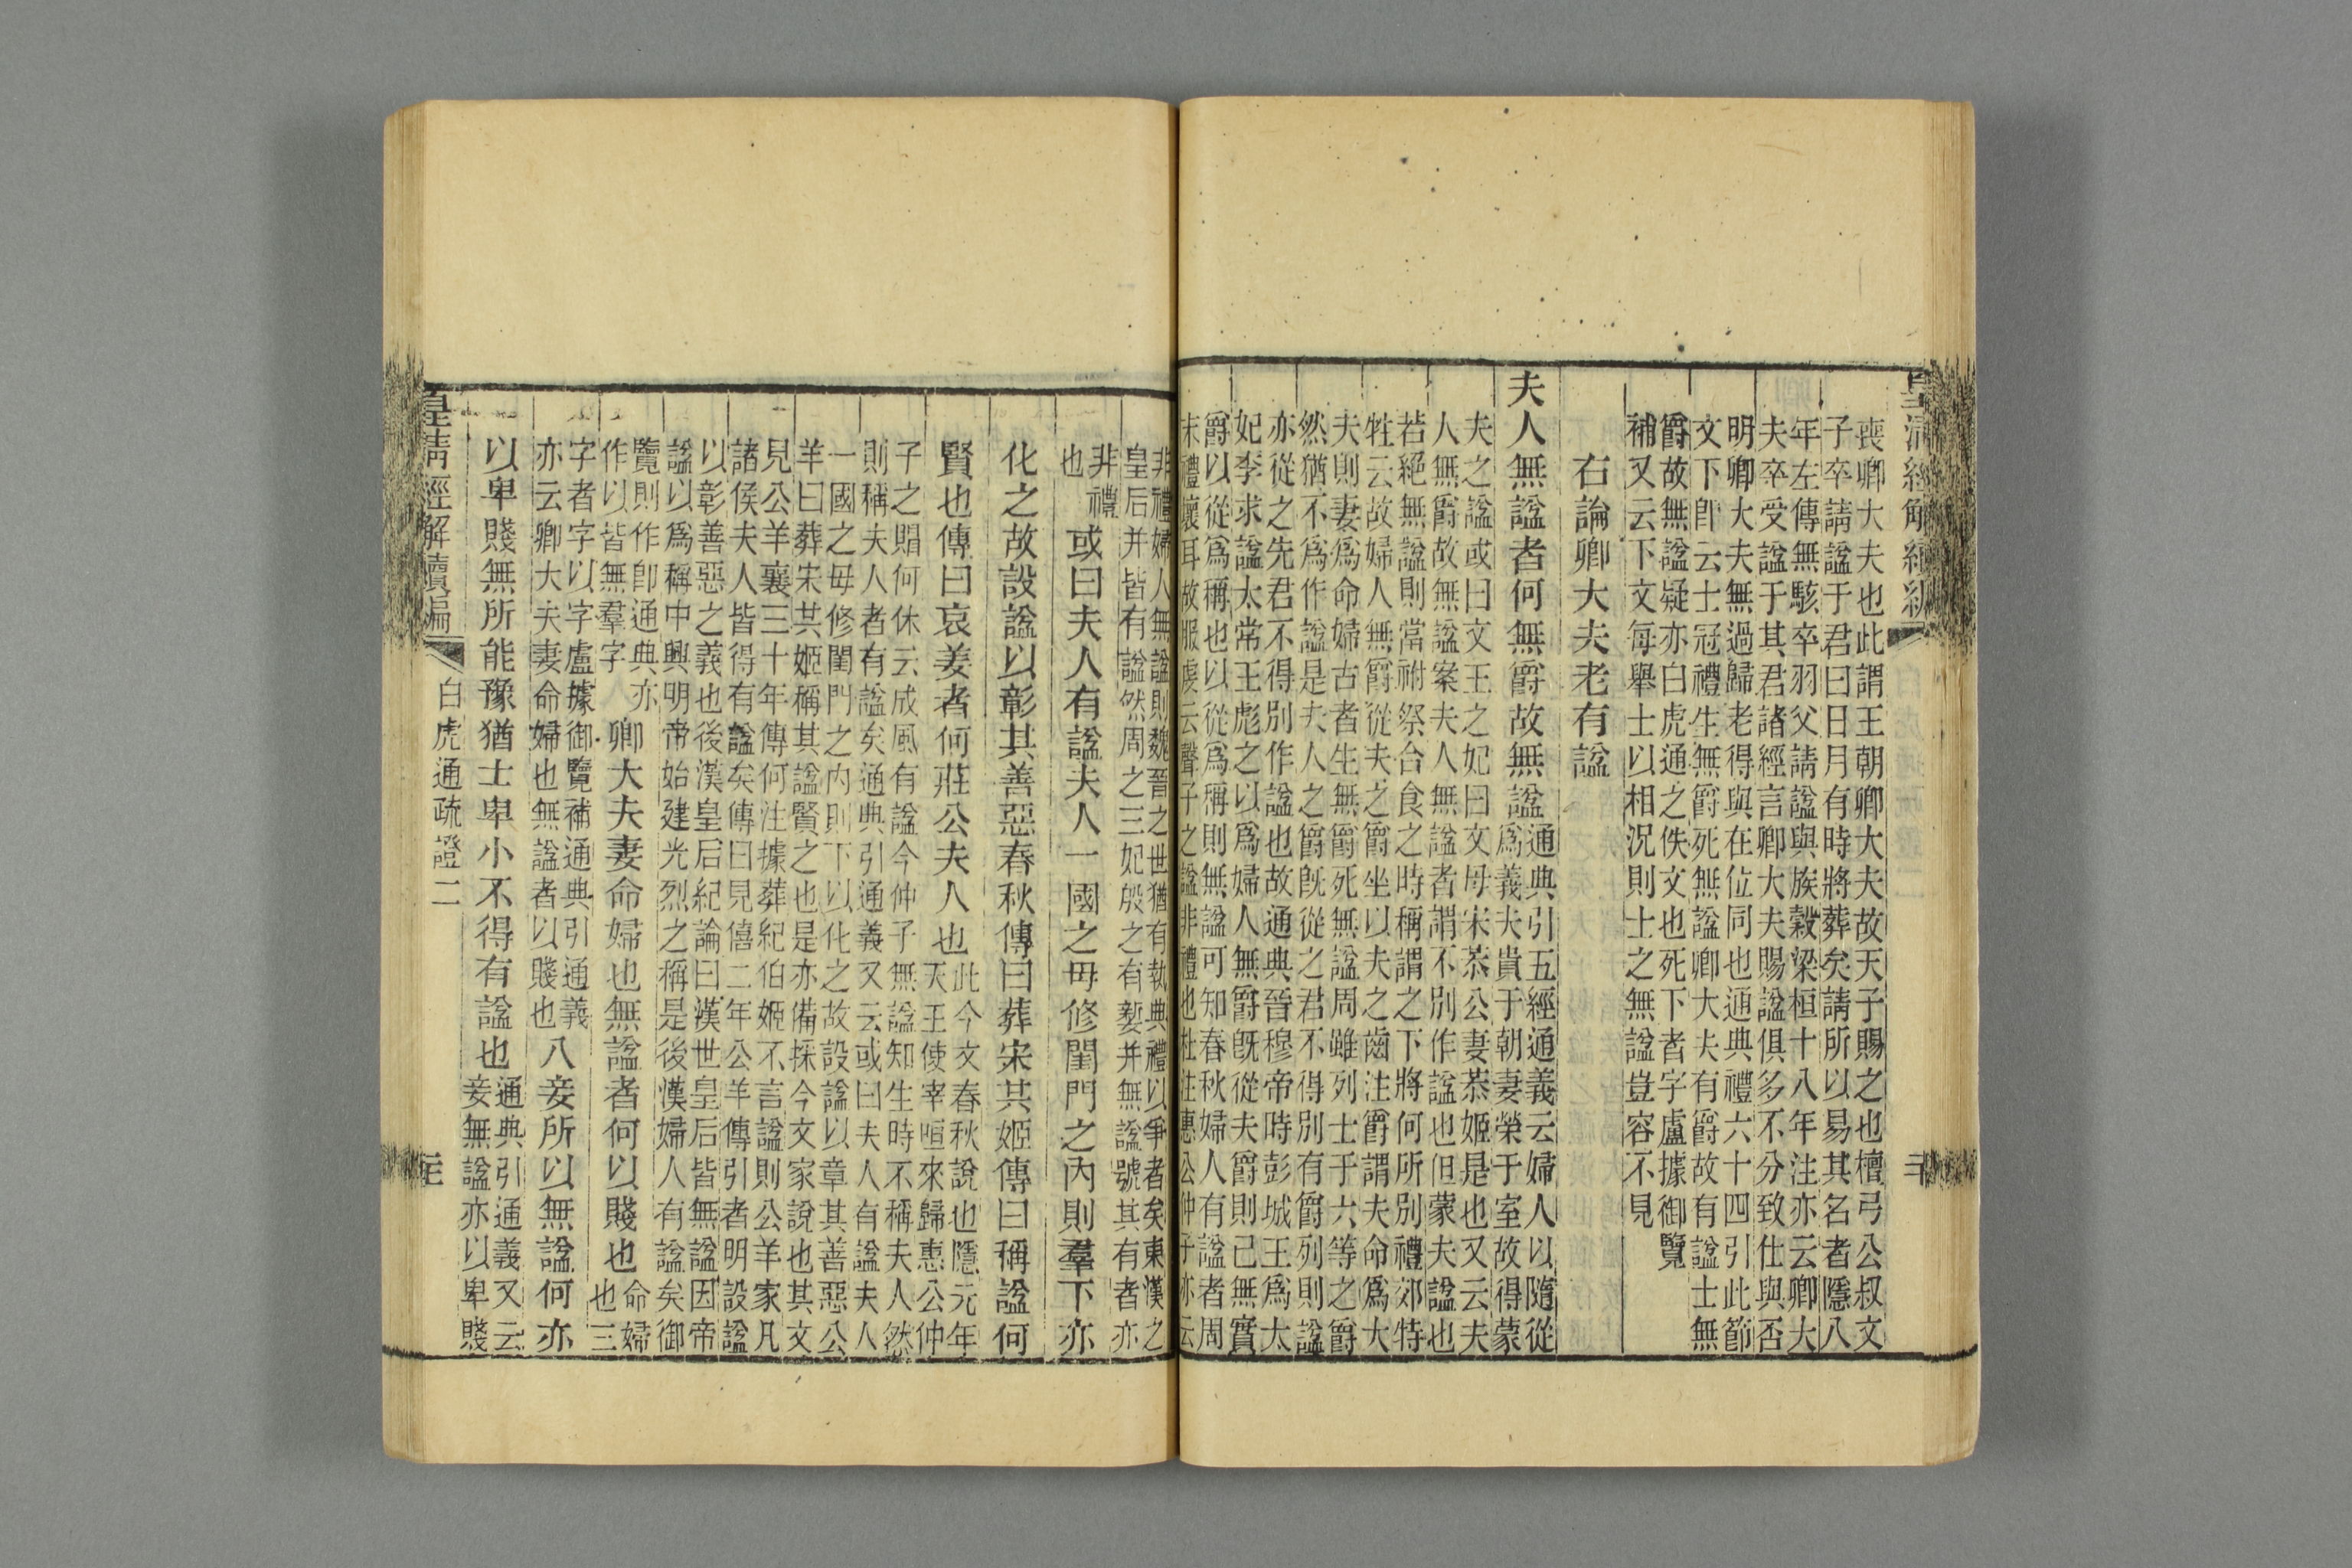 皇清經解續編
喪卿大夫也此謂王朝卿大夫故天子賜之也檀弓公叔文
子卒請諡于君曰日月有時將葬矣請所以易其名者隱八
年左傳無駭卒羽父請諡與族穀梁桓十八年注亦云卿大
夫卒受諡于其君諸經言卿大夫賜諡俱多不分致仕與否
明卿大夫無過歸老得與在位同也通典禮六十四引此節
文下卽云士冠禮生無爵死無諡卿大夫有爵故有諡士無
爵故無諡疑亦白虎通之佚文也死下者字盧據御覽
補又云下文每舉士以相況則士之無諡豈容不見
右論卿大夫老有諡
夫人無諡者何無爵故無諡
通典引五經通義云婦人以隨從
爲義夫貴于朝妻榮于室故得蒙
夫之諡或曰文王之妃曰文母宋恭公妻恭姬是也又云夫
人無爵故無諡案夫人無諡者謂不別作諡也但蒙夫諡也
若絕無諡則當祔祭合食之時稱謂之下將何所別禮郊特
牲云故婦人無爵從夫之爵坐以夫之齒注爵謂夫命爲大
夫則妻爲命婦古者生無爵死無諡周雖列士于六等之爵
然猶不爲作諡是夫人之爵旣從之君不得別有爵列則諡
亦從之先君不得別作諡也故通典晉穆帝時彭城王爲太
妃李求諡太常王彪之以爲婦人無爵旣從夫爵則已無實
爵以從爲稱也以從爲稱則無諡可知春秋婦人有諡者周
末禮壞耳故服虔云聲子之諡非禮也杜注惠公仲子亦云
非禮婦人無諡則魏晉之世猶有執典禮以爭者矣東漢之
皇后并皆有諡然周之三妃殷之有㜪并無諡號其有者亦
非禮
也
或曰夫人有諡夫人一國之毋修閨門之內則羣下亦
化之故設諡以彰其善惡春秋傳曰葬宋其姬傳曰稱諡何
賢也傳曰哀姜者何莊公夫人也
此今文春秋說也隱元年
天王使宰咺來歸惠公仲
子之賵何休云成風有諡今仲子無諡知生時不稱夫人然
則稱夫人者有諡矣通典引通義又云或曰夫人有諡夫人
一國之毋修閨門之內則下以化之故設諡以章其善惡公
羊曰葬宋其姬稱其諡賢之也是亦備採今文家說也其文
見公羊襄三十年傳何注據葬紀伯姬不言諡則公羊家凡
諸侯夫人皆得有諡矣傳曰見僖二年公羊傳引者明設諡
以彰善惡之義也後漢皇后紀論曰漢世皇后皆無諡因帝
諡以爲稱中興明帝始建光烈之稱是後漢婦人有諡矣御
覽則作卽通典亦
作以皆無羣字
卿大夫妻命婦也無諡者何以賤也
命婦
也三
字者字以字盧據御覽補通典引通義
亦云卿大夫妻命婦也無諡者以賤也
八妾所以無諡何亦
以卑賤無所能豫猶士卑小不得有諡也
通典引通義又云
妾無諡亦以卑賤
皇清經解續編
白虎通疏證二